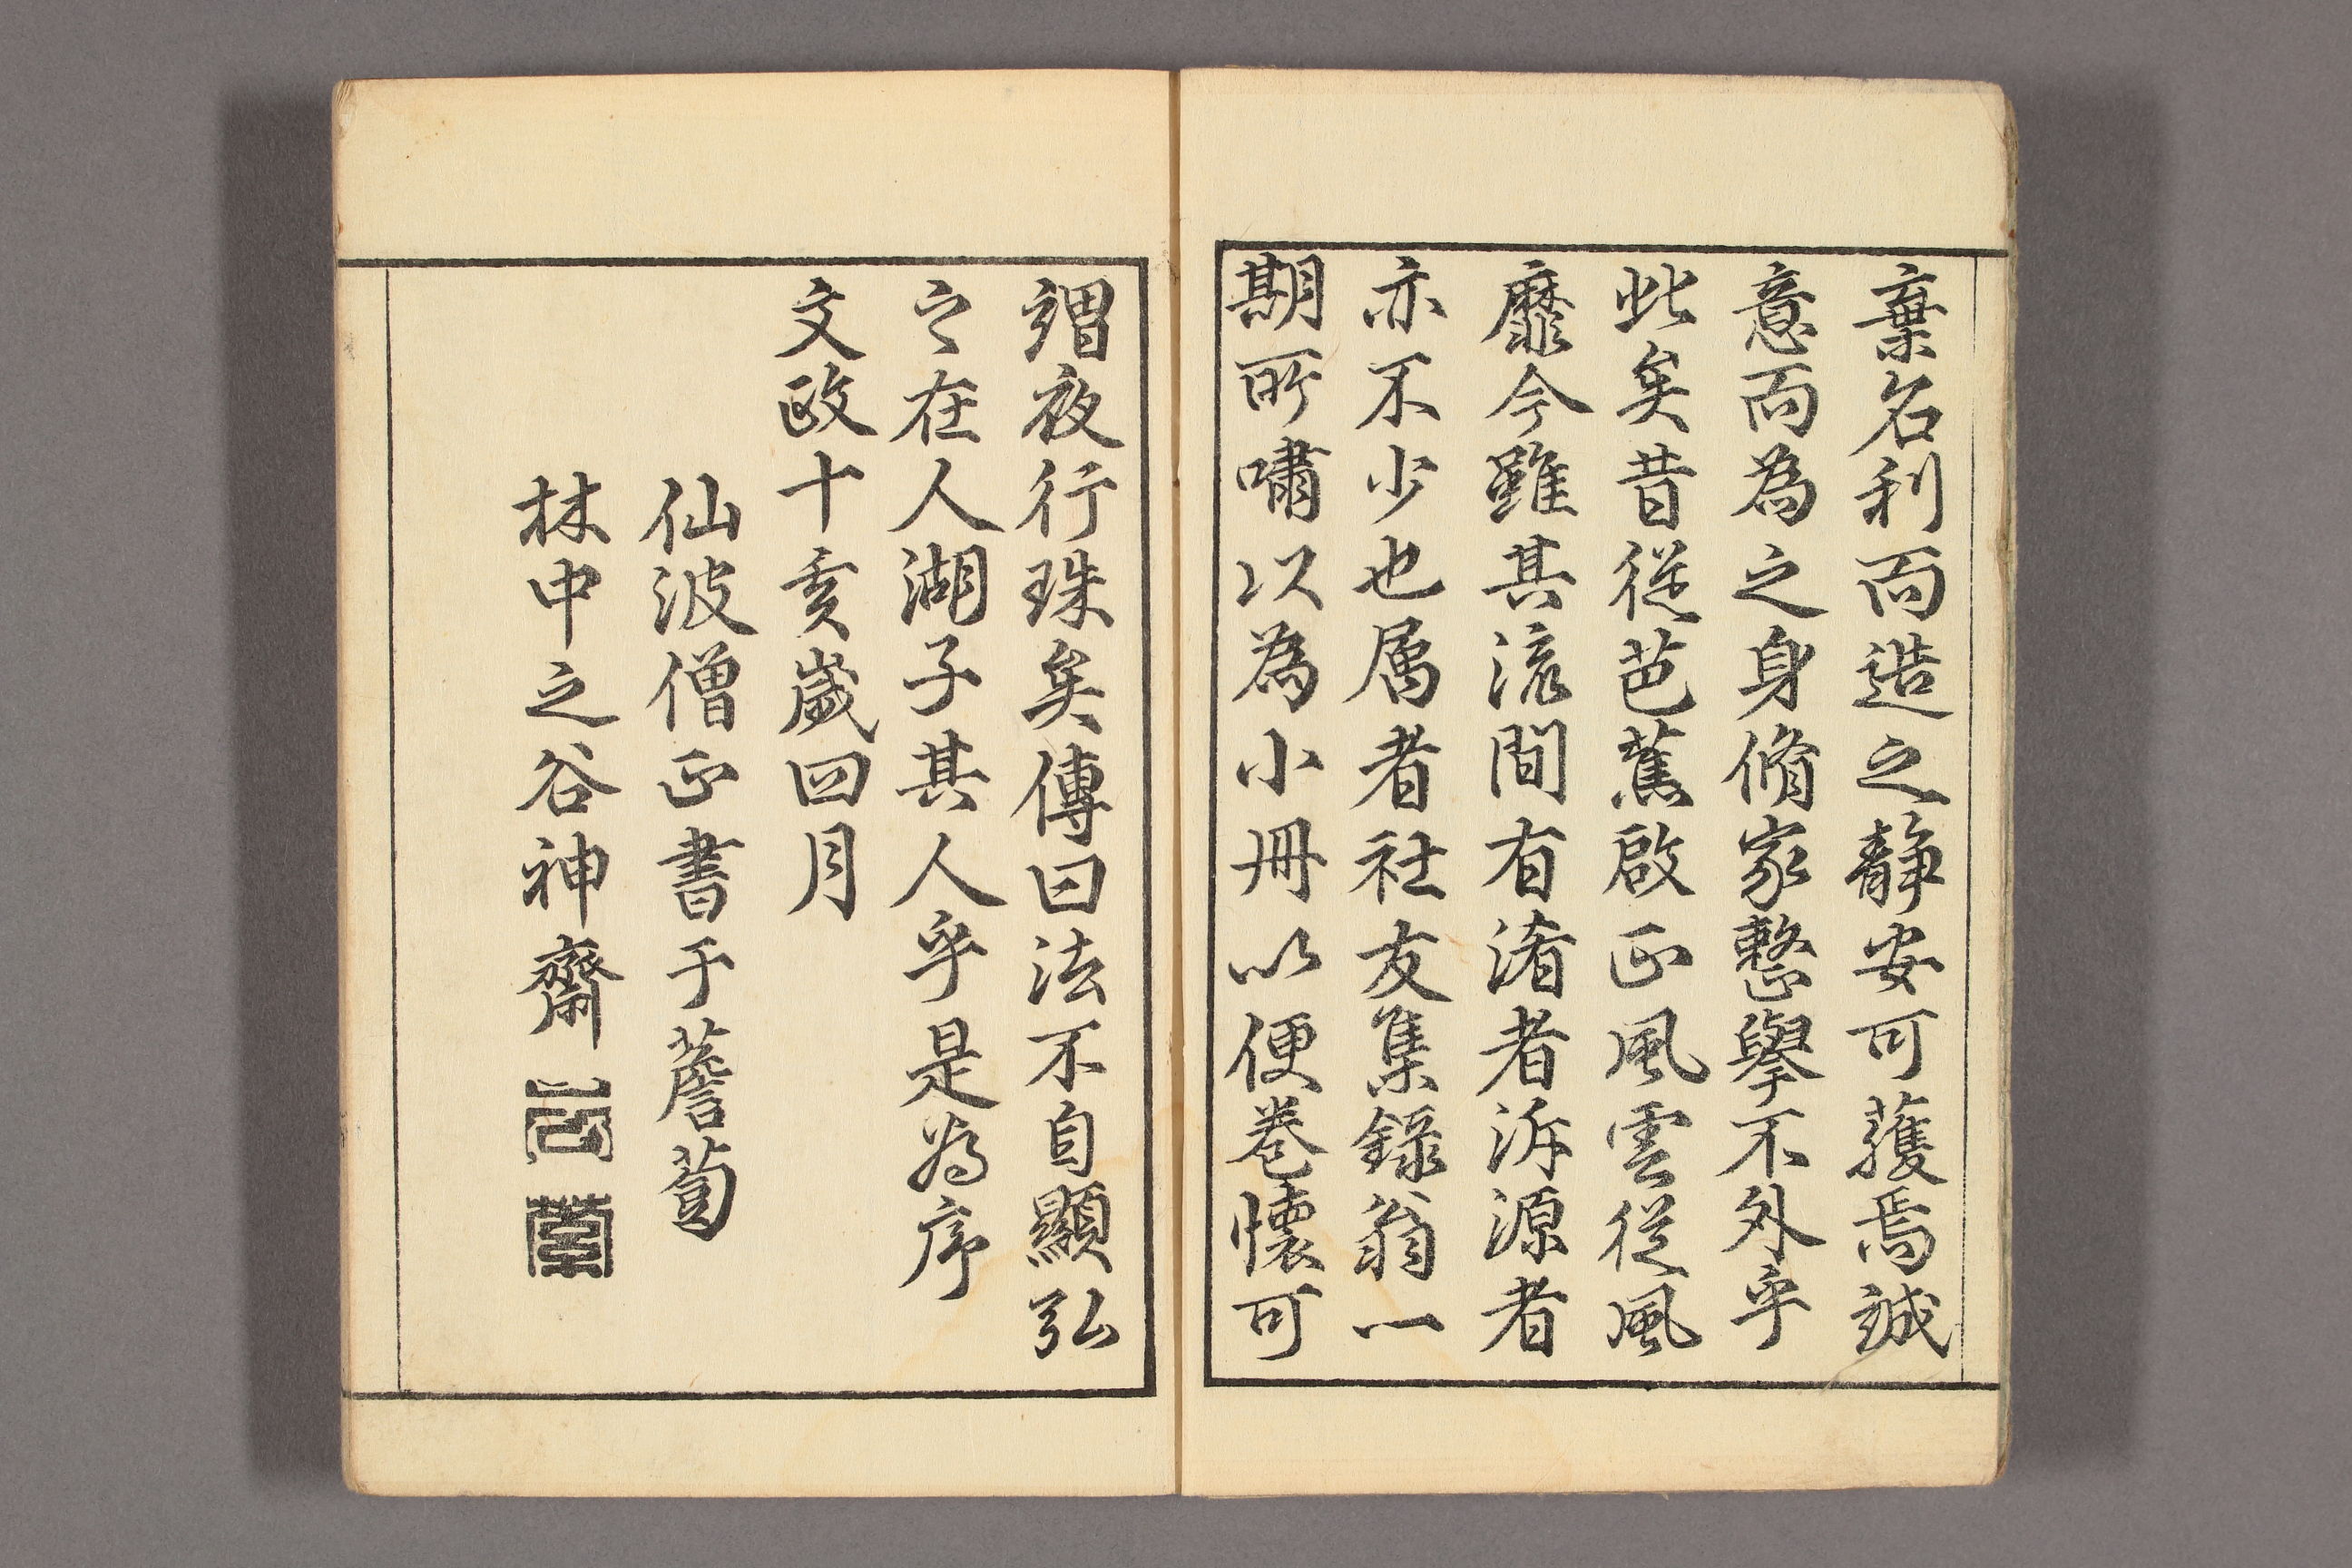 棄名利而造之靜安可獲焉誠
意而為之身脩家整擧不外乎
此矣昔從芭蕉啟正風雲從風
靡今雖其流間有淆者泝源者
亦不少也属者社友集錄翁一
期所嘯以為小冊以便巻懐可
謂夜行珠矣傳曰法不自顯弘
之在人湖子其人乎是為序
文政十亥歲四月
仙波僧正書于薝蔔
林中之谷神齋